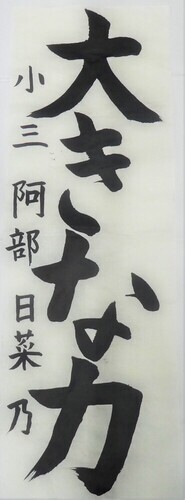 大きな力
小三 阿部日菜乃